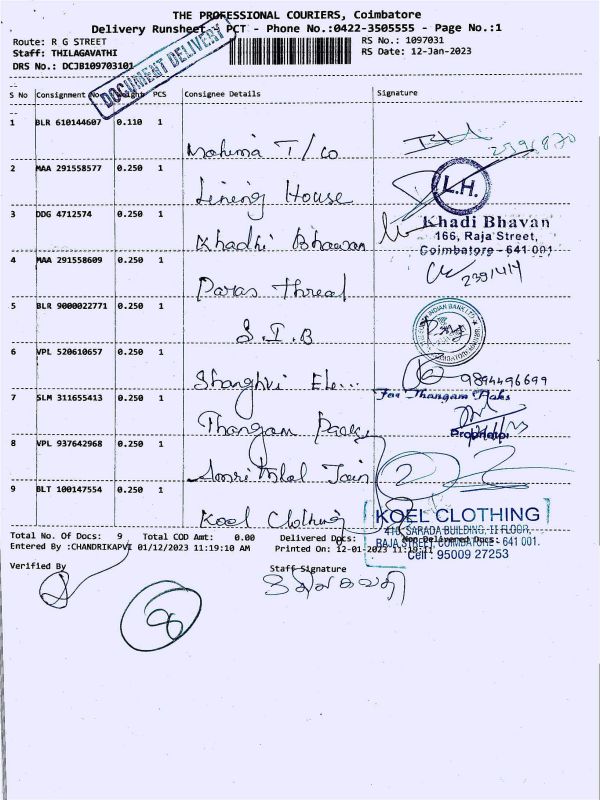 THE PROFESSIONAL COURIERS, Coimbatore
Delivery Runsheet PCT - Phone No.:0422-3505555 - Page No.:1
Route: R G STREET RS No.: 1097031
Staff: THILAGAVATHI RS Date: 12-Jan-2023
DRS No.: DCJB109703101
DOCUMENT DELIVERY
S No Consignment No Weight PCS Consignee Details Signature
1 BLR 610144607 0.110 1
Mahima T/Co
2 MAA 291558577 0.250 1
L.H.
Lining House
3 DDG 4712574 0.250 1
Khadi Bhavan
166, Raja Street,
Khadhi Bhavan
Coimbatore - 641 001
4 MAA 291558609 0.250 1
2391414
Paras thread
5 BLR 9000022771 0.250 1
INDIAN BANK LTD
S.I.B
6 VPL 520610657 0.250 1
9894496699
Shanghvi Ele...
7 SLM 311655413 0.250 1
For Thangam
Thangam
Proprietor
8 VPL 937642968 0.250 1
Jain
9 BLT 100147554 0.250 1
Koel Clothing
KOEL CLOTHING
416, SARADA BUILDING, II FLOOR,
RAJA STREET, COIMBATORE - 641 001.
Cell : 95009 27253
Total No. Of Docs: 9 Total COD Amt: 0.00 Delivered Docs: Non Delivered Docs:
Entered By :CHANDRIKAPVI 01/12/2023 11:19:10 AM Printed On: 12-01-2023 11:19:11
Verified By Staff Signature